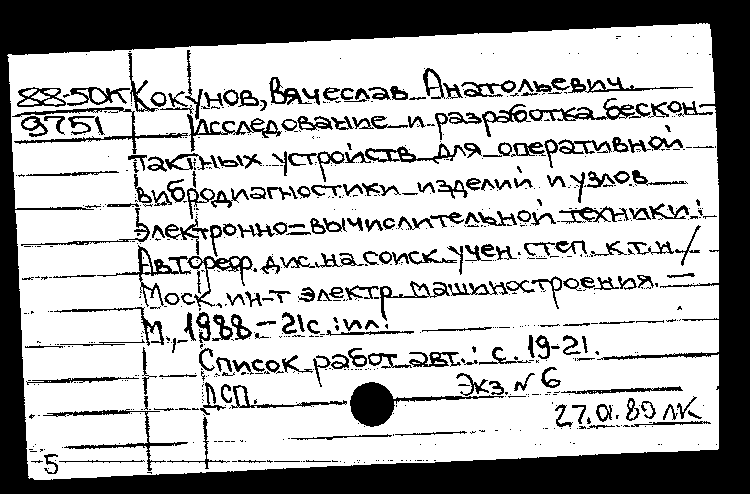 88-50К Кокунов, Вячеслав Анатольевич.
9751 Исследование и разработка бескон=
тактных устройств для оперативной
вибродиагностики изделий и узлов
электронно=вычислительной техники:
Автореф. дис. на соиск. учен. степ. к.т.н./
Моск. ин-т электр. машиностроения. —
М., 1988. - 21с. : ил.
Список работ авт.: с. 19-21.
ДСП. Экз. № 6
5